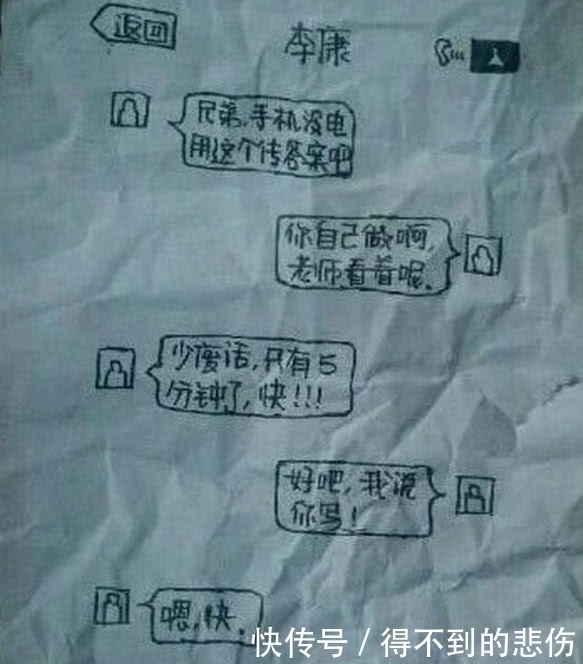 返回
李康
兄弟,手机没电
用这个传答案吧
你自己做啊,
老师看着呢.
少废话,只有5
分钟了,快!!!
好吧,我说
你写!
嗯,快.
快传号/得不到的悲伤